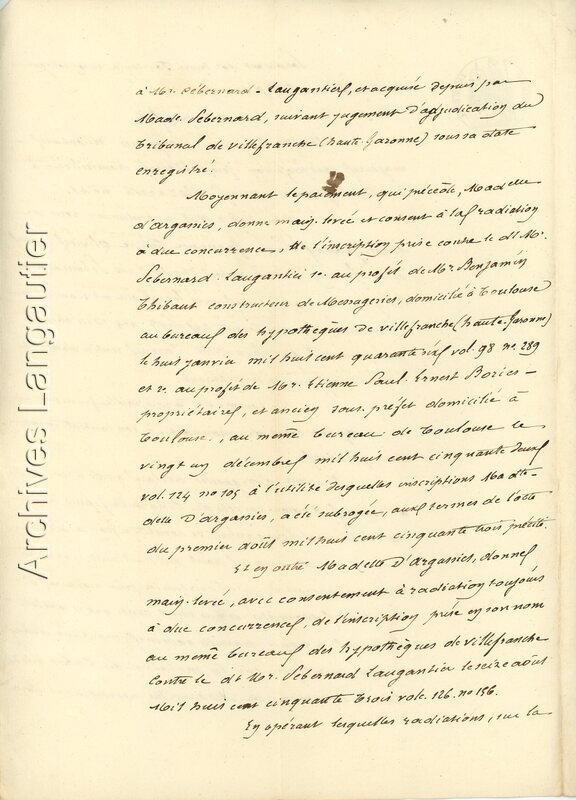 à Mr. Sebernard-Laugantier, et acquise depuis par
Made. Sebernard, suivant jugement d'adjudication du
tribunal de villefranche (haute-Garonne) sous sa date
enregistré.
Moyennant le paiement, qui précède, Madelle
d'argassies, donne main-levée et consent à la radiation
à due concurrence, de l'inscription prise contre le dt. Mr.
Sebernard-Laugantier 1e. au profit de Mr. Benjamin
Thibaut constructeur de Menageries, domicilié à Toulouse
au bureau des hypothèques de villefranche (haute-Garonne)
le huit janvier mil huit cent quarante six vol. 98 no. 289
et 2e. au profit de Mr. Etienne Paul-Ernest Bories-
propriétaire, et ancien sous-préfet domicilié à
Toulouse, au même bureau de Toulouse le
vingt un décembre mil huit cent cinquante deux
vol. 124 no 105 à l'utilité desquelles inscriptions Made-
delle D'argassies, a été subrogée, aux termes de l'acte
du premier août mil huit cent cinquante trois précité.
Et en outre Madelle D'argassies, donne
main-levée, avec consentement à radiation toujours
à due concurrence, de l'inscription prise en son nom
au même bureau des hypothèques de villefranche
contre le dt. Mr. Sebernard Laugantier le seize août
Mil huit cent cinquante trois vol. 126. no 156.
En opérant lesquelles radiations, sur la
Archives Langautier